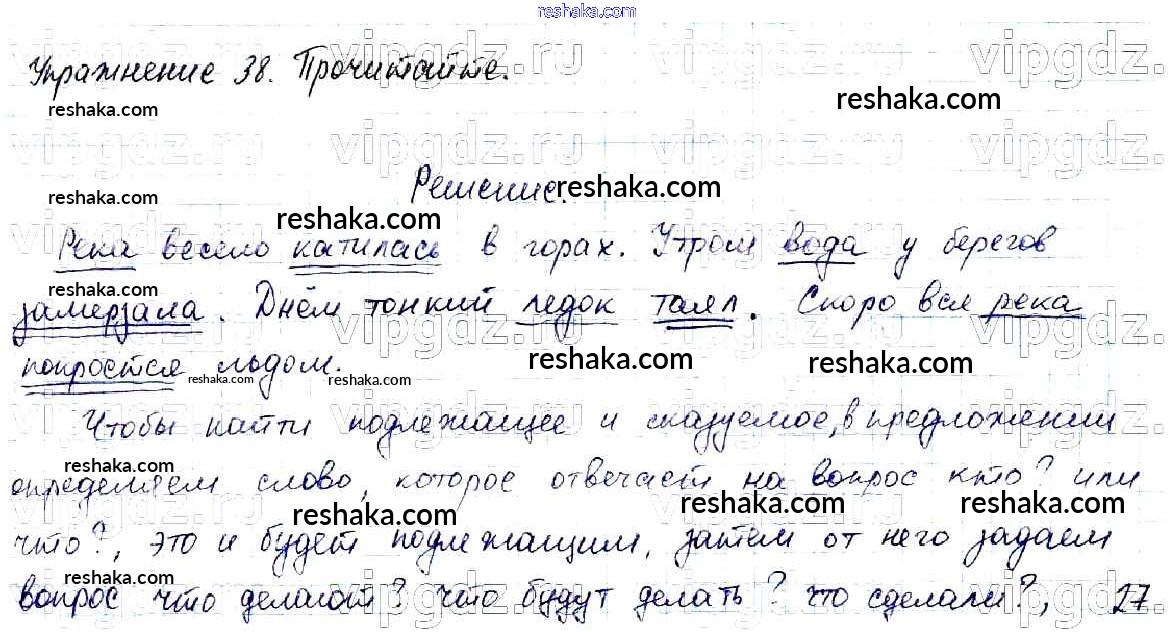 reshaka.com
Упражнение 38. Прочитайте.
reshaka.com
reshaka.com
vipgdz.ru
reshaka.com
Решение.
reshaka.com
reshaka.com
Река весело катилась в горах. Утром вода у берегов
reshaka.com
замерзала. Днём тонкий ледок таял. Скоро вся река
покроется льдом.
reshaka.com
reshaka.com
reshaka.com
reshaka.com
Чтобы найти подлежащее и сказуемое, в предложении
reshaka.com
определяем слово, которое отвечает на вопрос кто? или
reshaka.com
reshaka.com
что?, это и будет подлежащим, затем от него задаем
reshaka.com
вопрос что делают? что будут делать? что сделали?, 27